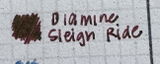 Diamine
Sleigh Ride